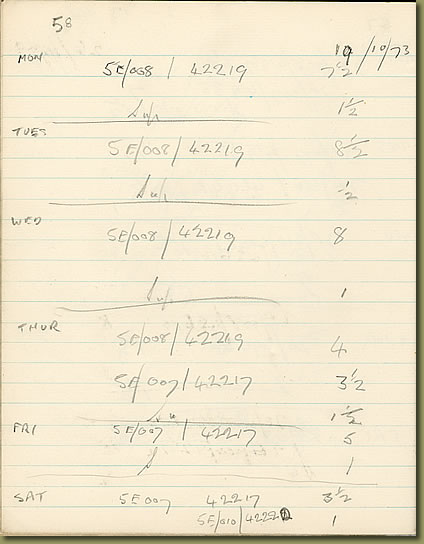 58
19/10/73
MON 5E/008 / 42219 7½
Sup 1½
TUES
5E/008 / 42219 8½
Sup ½
WED
5E/008 / 42219 8
Sup 1
THUR
5E/008 / 42219 4
5E/007 / 42217 3½
1½
FRI 5E/007 / 42217 5
1
SAT 5E007 42217 3½
5E/010 / 42220 1